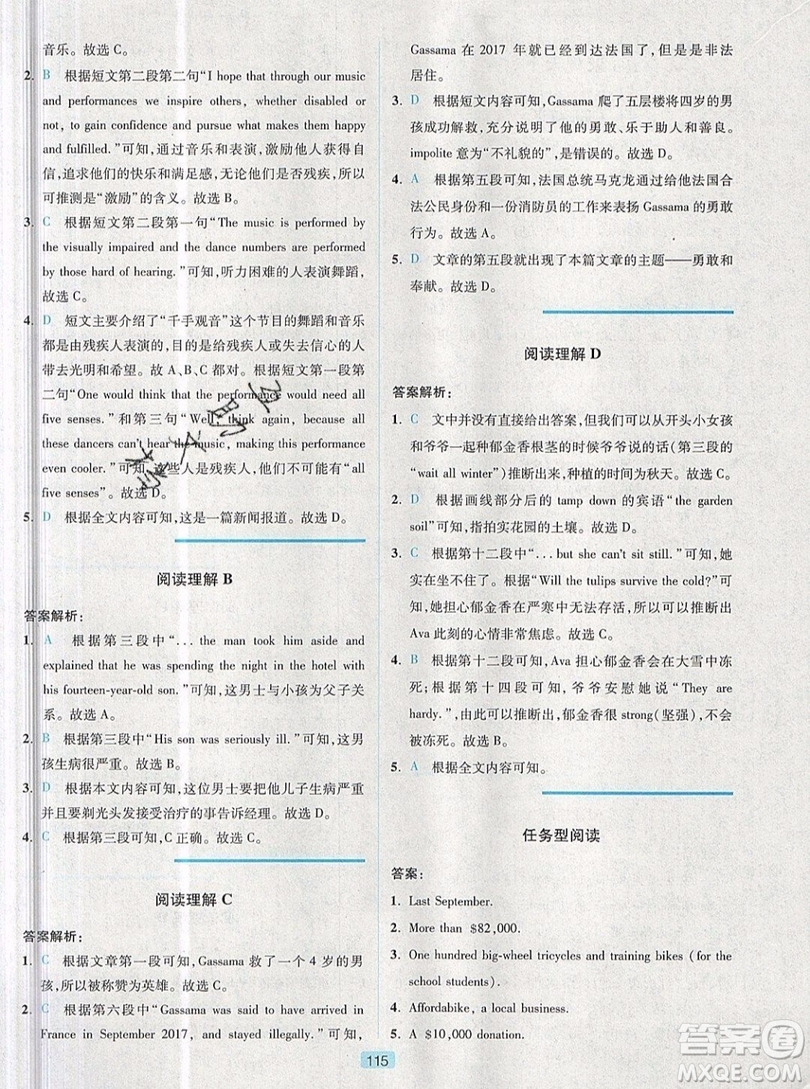 音乐。故选 C。
2. B 根据短文第二段第二句“I hope that through our music
and performances we inspire others, whether disabled or
not, to gain confidence and pursue what makes them happy
and fulfilled.”可知,通过音乐和表演,激励他人获得自
信,追求他们的快乐和满足感,无论他们是否残疾,所以
可推测是“激励”的含义。故选 B。
3. C 根据短文第二段第一句“The music is performed by
the visually impaired and the dance numbers are performed
by those hard of hearing.”可知,听力困难的人表演舞蹈,
故选 C。
4. D 短文主要介绍了“千手观音”这个节目的舞蹈和音乐
都是由残疾人表演的,残疾人表演时的自信心和热情给人
带去光明和希望。故 A、B、C 都是错误的。根据短文第一段第
二句“One would think that the performance would need all
five senses.”和第三句“Well, think again, because all
these dancers can't hear the music, making this performance
even cooler.”可知,这些人是残疾人,他们不可能有“all
five senses”。故选 D。
5. D 根据全文内容可知,这是一篇新闻报道。故选 D。
阅读理解 B
答案解析:
1. A 根据第三段中“...the man took him aside and
explained that he was spending the night in the hotel with
his fourteen-year-old son.”可知,这男士与小孩为父子关
系。故选 A。
2. B 根据第三段中“His son was seriously ill.”可知,这男
孩生病很严重。故选 B。
3. D 根据本文内容可知,这位男士要把他儿子生病严重
并且要剃光头发接受治疗的事告诉经理。故选 D。
4. C 根据第三段可知,C 正确。故选 C。
阅读理解 C
答案解析:
1. C 根据文章第一段可知, Gassama 救了一个 4 岁的男
孩,所以被称赞为英雄。故选 C。
2. C 根据第六段中“Gassama was said to have arrived in
France in September 2017, and stayed illegally.”可知,
Gassama 在 2017 年就已经到达法国了,但是是非法
居住。故选 C。
3. D 根据短文内容可知, Gassama 爬了五层楼将四岁的男
孩成功解救,充分说明了他的勇敢、乐于助人和善良。
impolite 意为“不礼貌的”,是错误的。故选 D。
4. A 根据第五段可知,法国总统马克龙通过给他法国合
法公民身份和一份消防员的工作来表扬 Gassama 的勇敢
行为。故选 A。
5. D 文章的第五段就出现了本篇文章的主题——勇敢和
奉献。故选 D。
阅读理解 D
答案解析:
1. C 文中并没有直接给出答案,但我们可以从开头小女孩
和爷爷一起种郁金香根茎的时候爷爷说的话(第三段的
“wait all winter”)推断出来,种植的时间为秋天。故选 C。
2. D 根据画线部分后的 tamp down 的宾语“the garden
soil”可知,指拍实花园的土壤。故选 D。
3. C 根据第十二段中“...but she can't sit still.”可知,她
实在坐不住了。根据“Will the tulips survive the cold?”可
知,她担心郁金香在严寒中无法生存,所以可以推断出
Ava 此刻的心情非常焦虑。故选 C。
4. B 根据第十二段可知, Ava 担心郁金香会在大雪中冻
死;根据第十四段可知,爷爷安慰她说“They are
hardy.”,由此可以推断出,郁金香很 strong(坚强),不会
被冻死。故选 B。
5. A 根据全文内容可知。
任务型阅读
答案:
1. Last September.
2. More than $82,000.
3. One hundred big-wheel tricycles and training bikes (for the
school students).
4. Affordabike, a local business.
5. A $10,000 donation.
115
答案圈
MXQE.COM